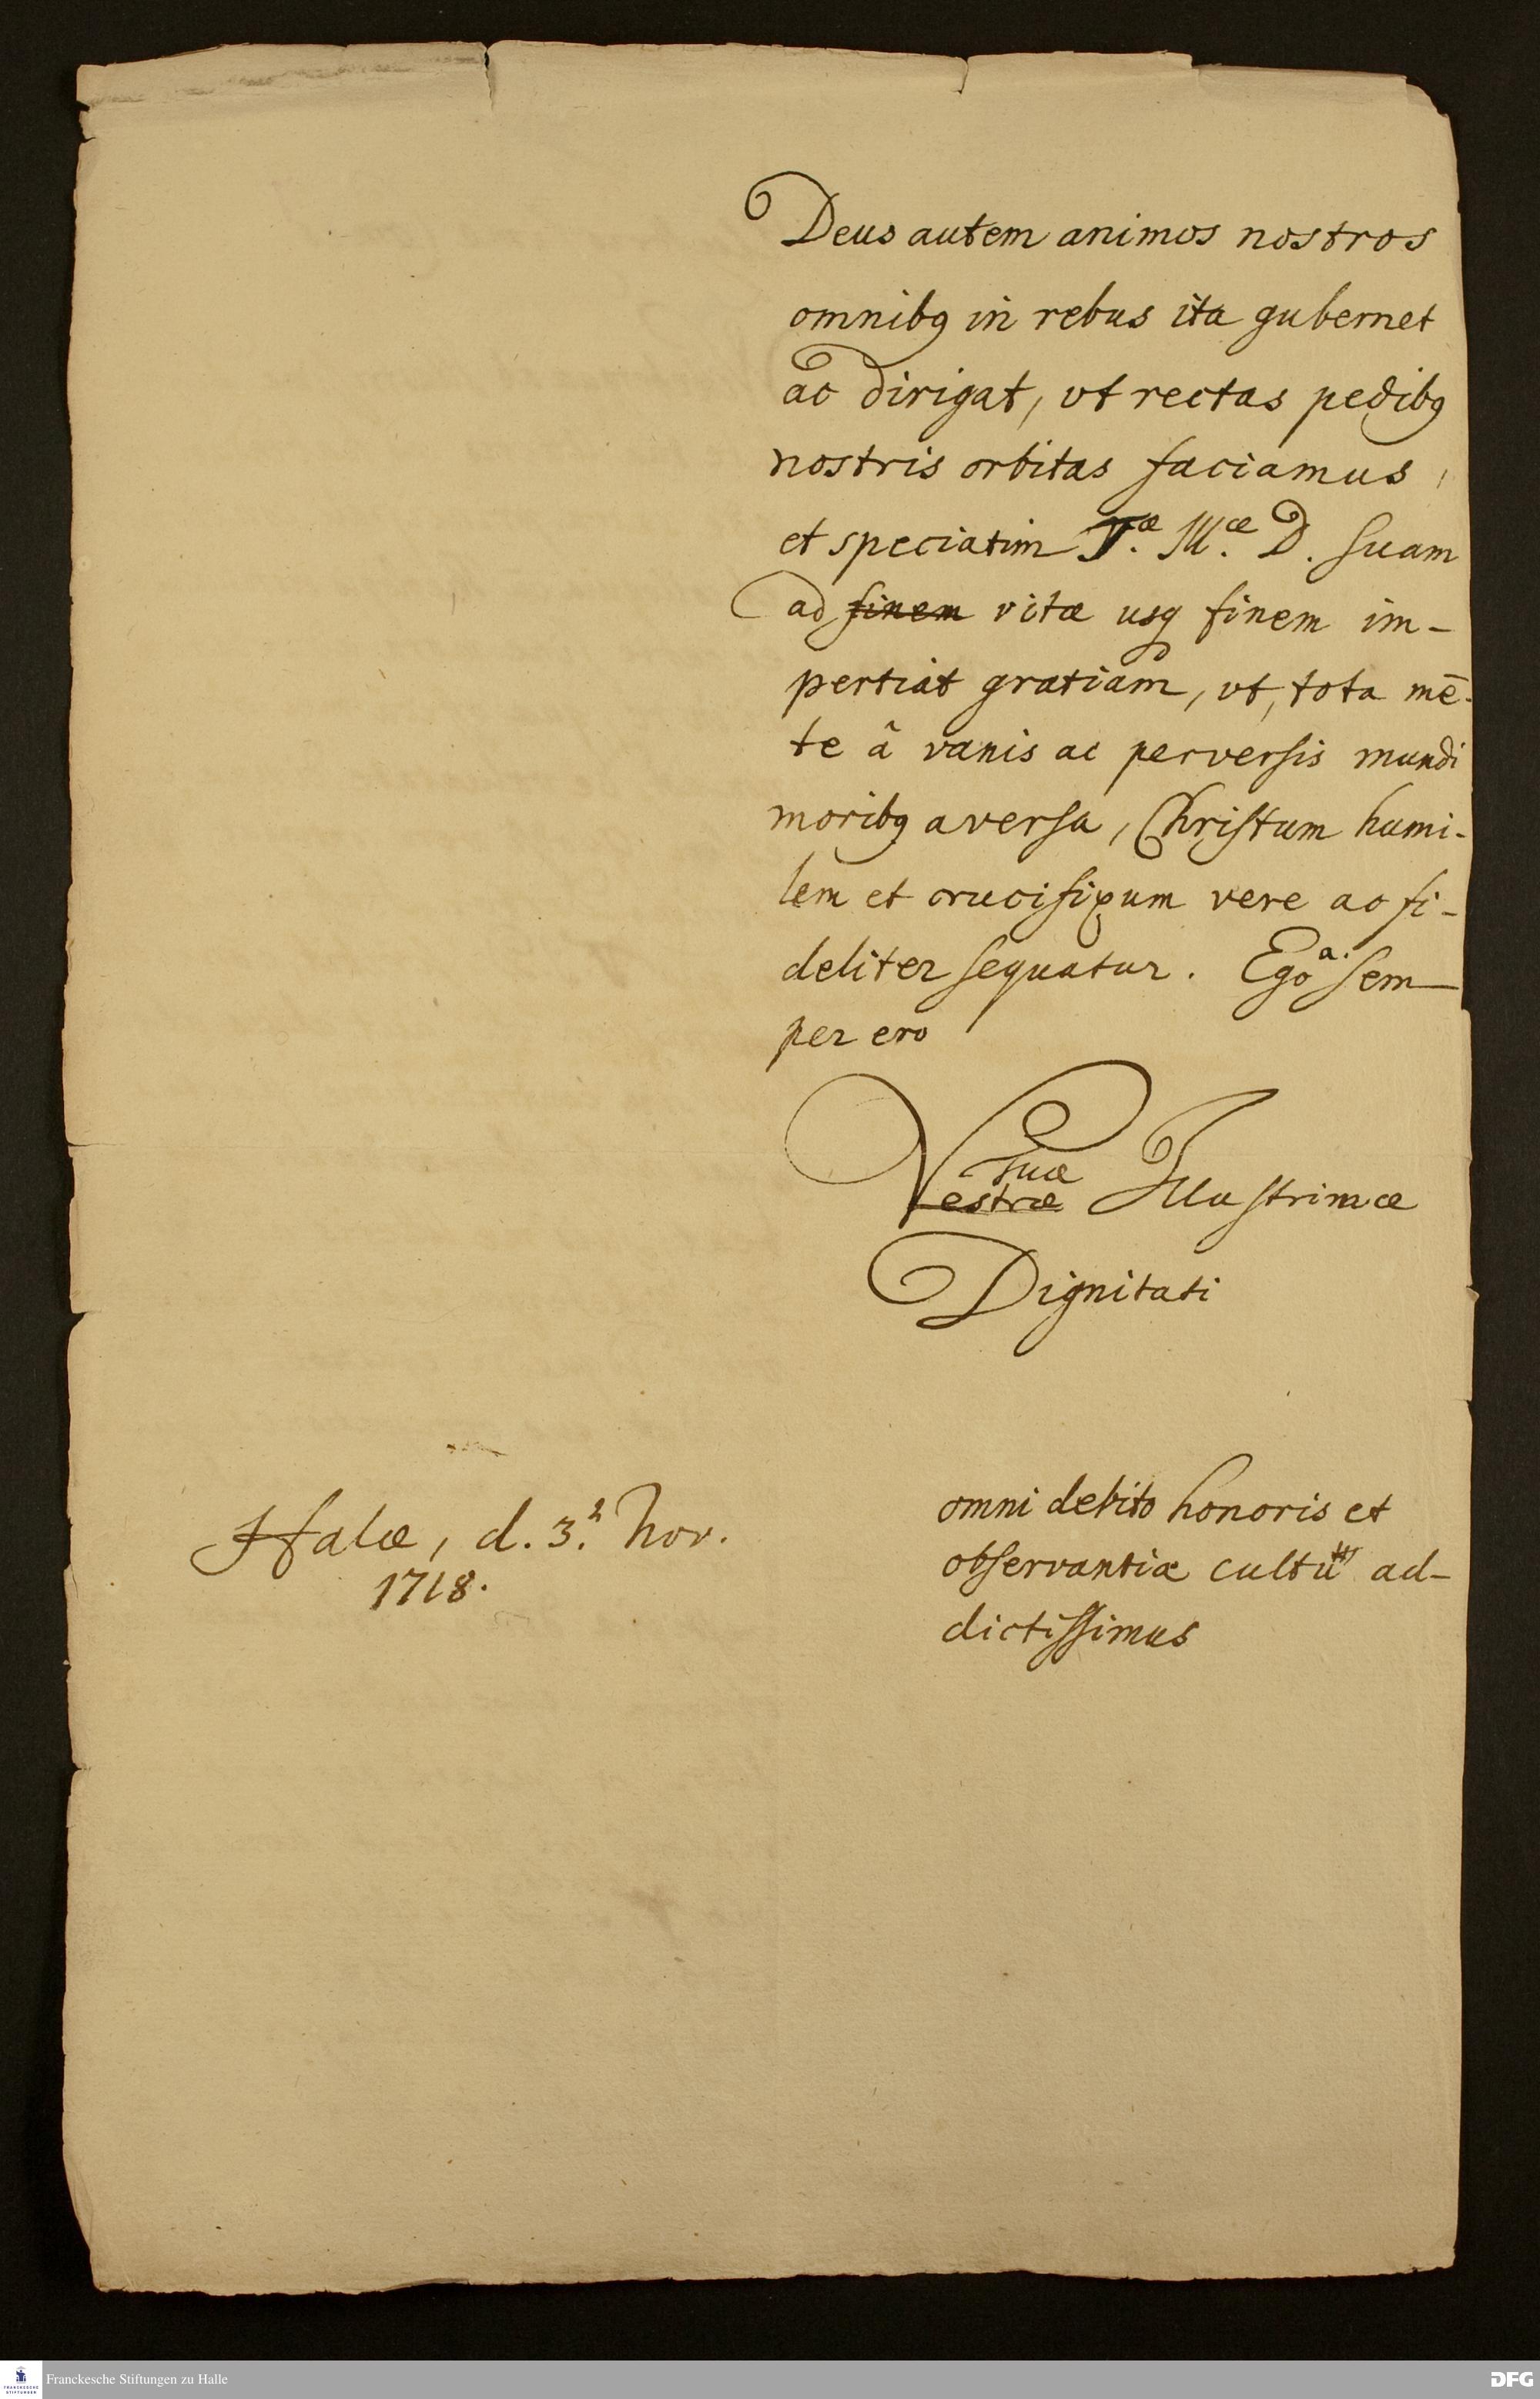 Deus autem animos nostros
omnibq in rebus ita gubernet
ac dirigat, vt rectas pedibq
nostris orbitas faciamus,
et speciatim Tæ. Mæ. D. suam
ad finem vitæ usq finem im-
pertiat gratiam, vt, tota mē-
te â vanis ac perversis mundi
moribq aversa, Christum humi-
lem et crucifixum vere ac fi-
deliter sequatur. Ego a. sem-
per ero
Suæ
Vestræ Illustrimæ
Dignitati
omni debito honoris et
observantiæ cultu ad-
dictissimus
Halæ, d. 3. Nov.
1718.
Franckesche Stiftungen zu Halle
DFG